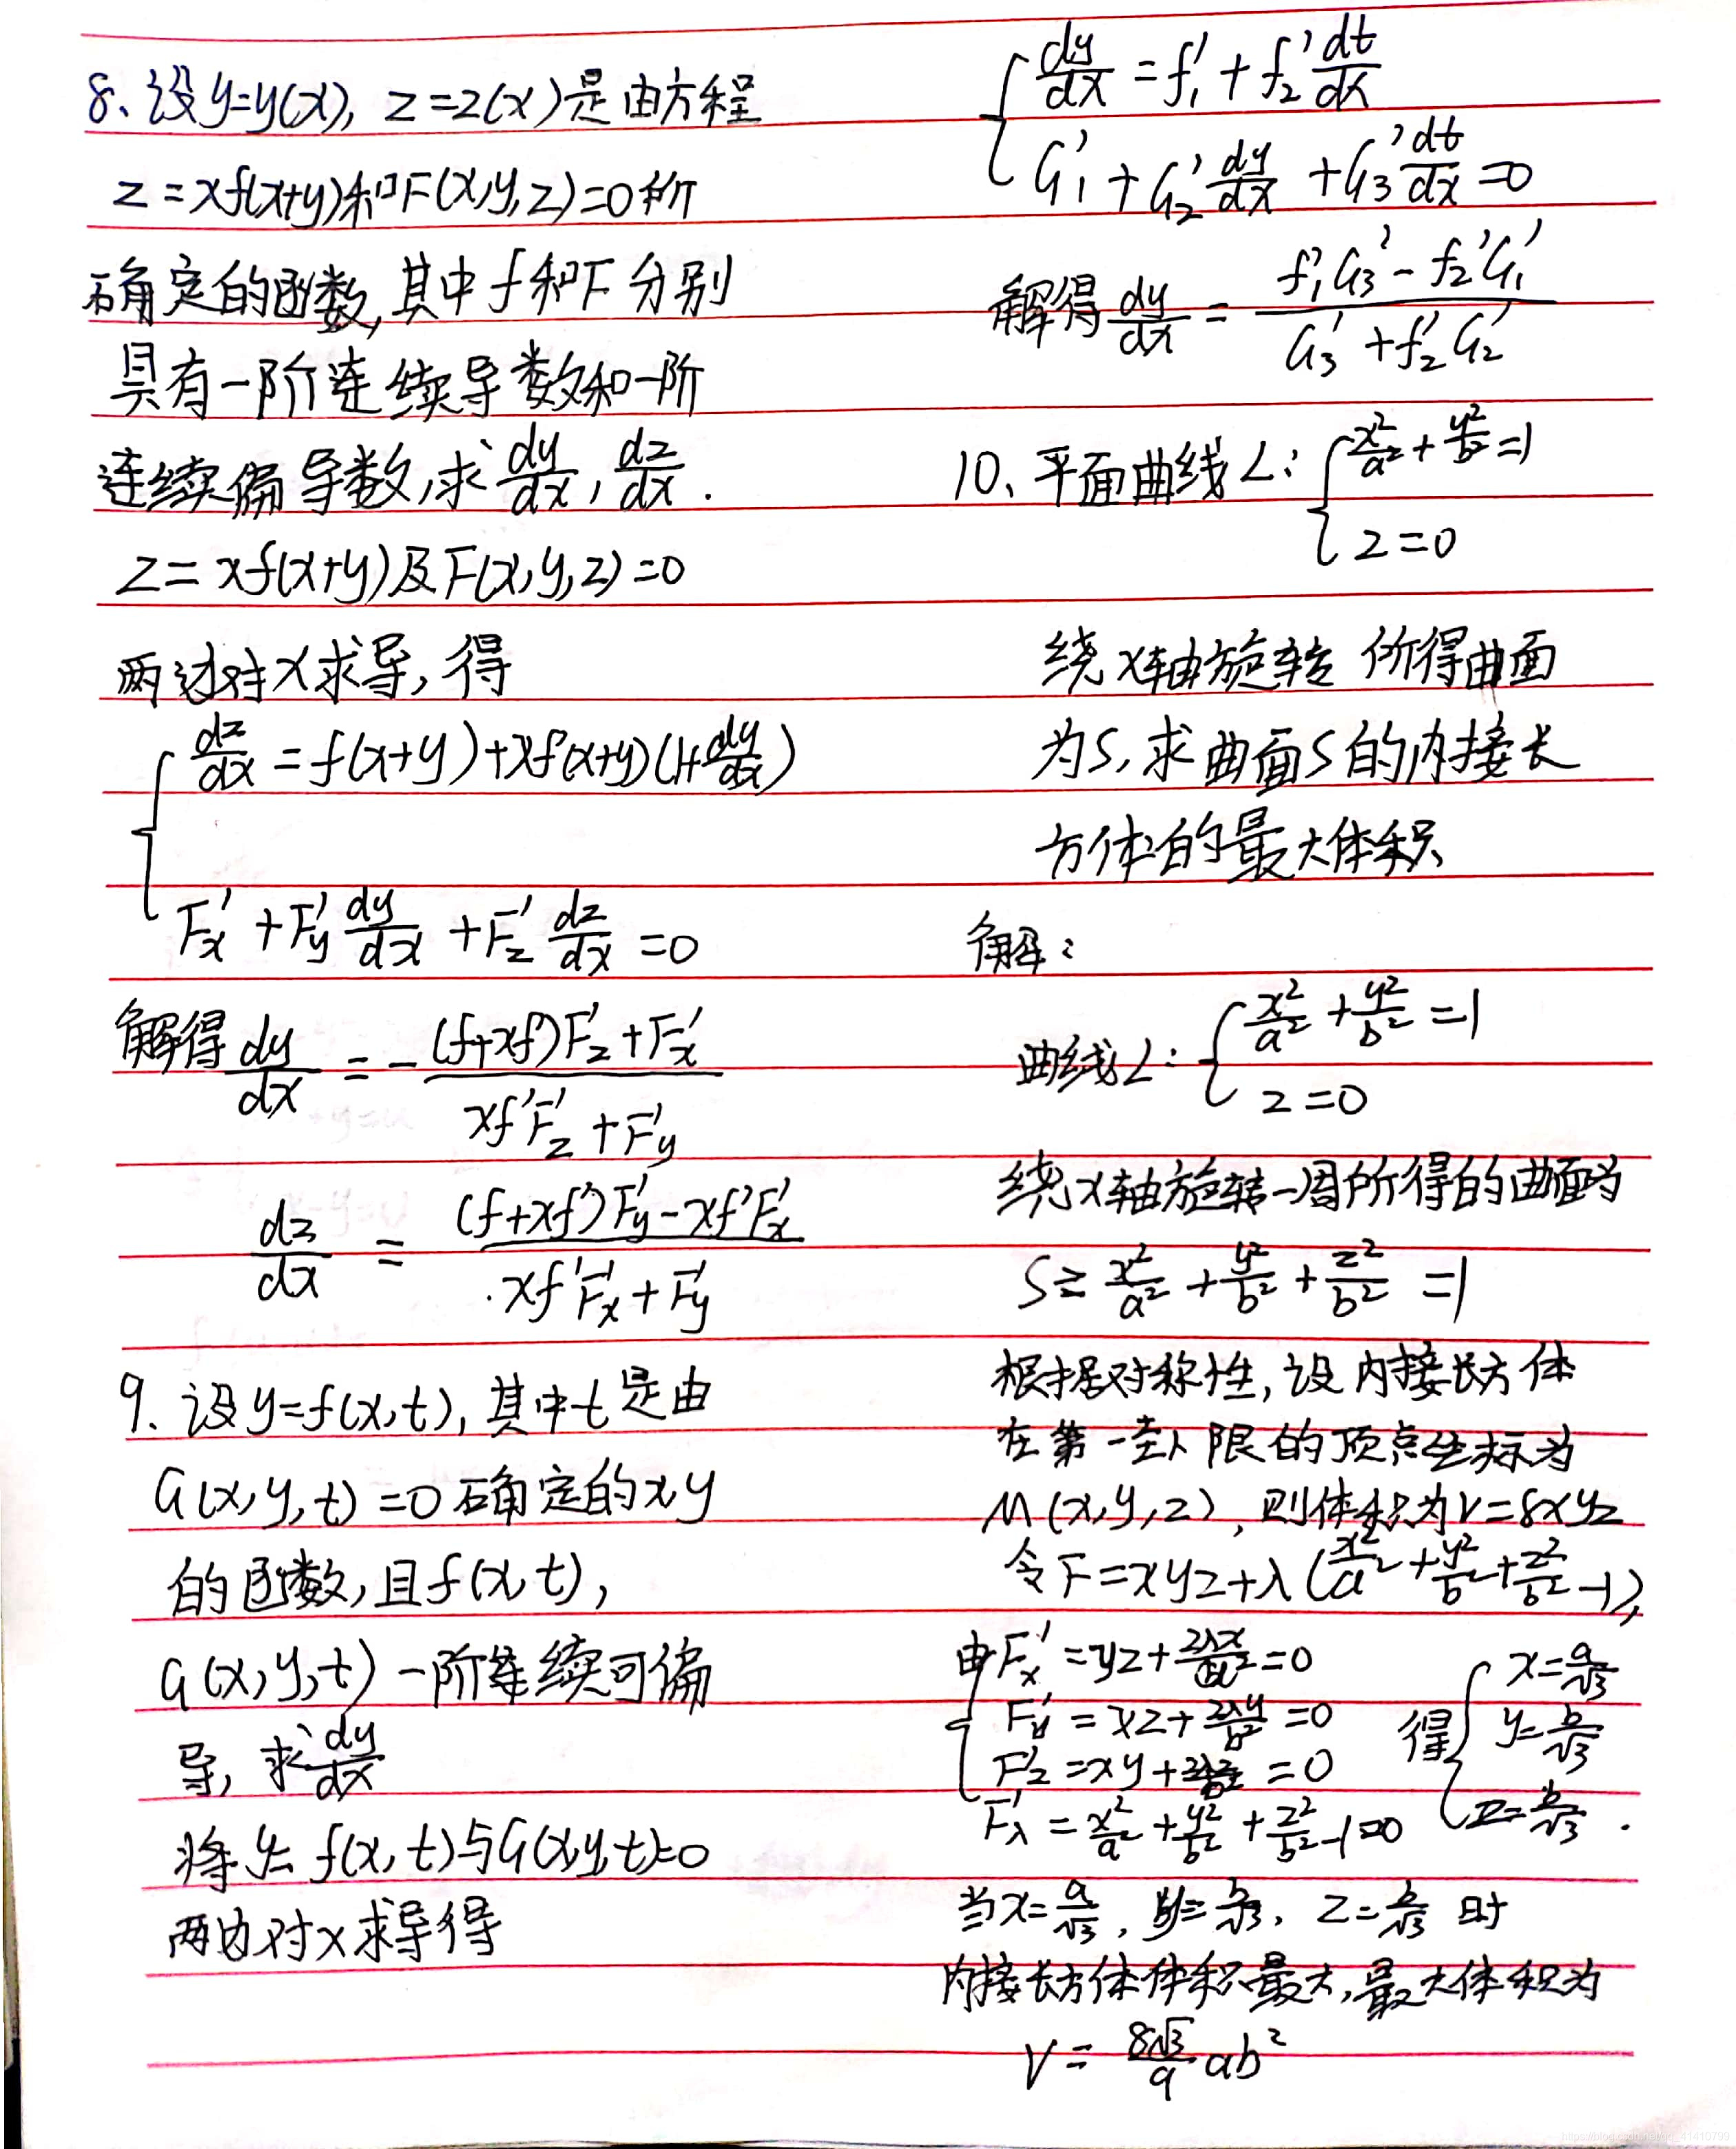 8、设y=y(x), z=z(x)是由方程
z=xf(x+y)和F(x,y,z)=0所
确定的函数,其中f和F分别
具有一阶连续导数和一阶
连续偏导数,求dy/dx, dz/dx.
z=xf(x+y)及F(x,y,z)=0
两边对x求导,得
{ dz/dx=f(x+y)+xf'(x+y)(1+dy/dx)
F'x+F'y dy/dx+F'z dz/dx=0
解得dy/dx=-((f+xf')F'z+F'x)/(xf'F'z+F'y)
dz/dx=((f+xf')F'y-xf'F'x)/(xf'F'x+F'y)
9、设y=f(x,t),其中t是由
G(x,y,t)=0确定的x y
的函数,且f(x,t),
G(x,y,t)一阶连续可偏
导,求dy/dx
将y=f(x,t)与G(x,y,t)=0
两边对x求导得
{ dy/dx=f'1+f'2 dt/dx
G'1+G'2 dy/dx+G'3 dt/dx=0
解得dy/dx=(f'1G'3-f'2G'1)/(G'3+f'2G'2)
10、平面曲线L:{ x²/a²+y²/b²=1
z=0
绕x轴旋转所得曲面
为S,求曲面S的内接长
方体的最大体积
解:
曲线L:{ x²/a²+y²/b²=1
z=0
绕x轴旋转一周所得的曲面为
S= x²/a²+y²/b²+z²/b²=1
根据对称性,设内接长方体
在第一卦限的顶点坐标为
M(x,y,z),则体积为V=8xyz
令F=xyz+λ(x²/a²+y²/b²+z²/b²-1),
由{ F'x=yz+2λx/a²=0
F'y=xz+2λy/b²=0
F'z=xy+2λz/b²=0
F'λ=x²/a²+y²/b²+z²/b²-1=0
得{ x=a/√3
y=b/√3
z=b/√3.
当x=a/√3, y=b/√3, z=b/√3时
内接长方体体积最大,最大体积为
V=8√3/9 ab²